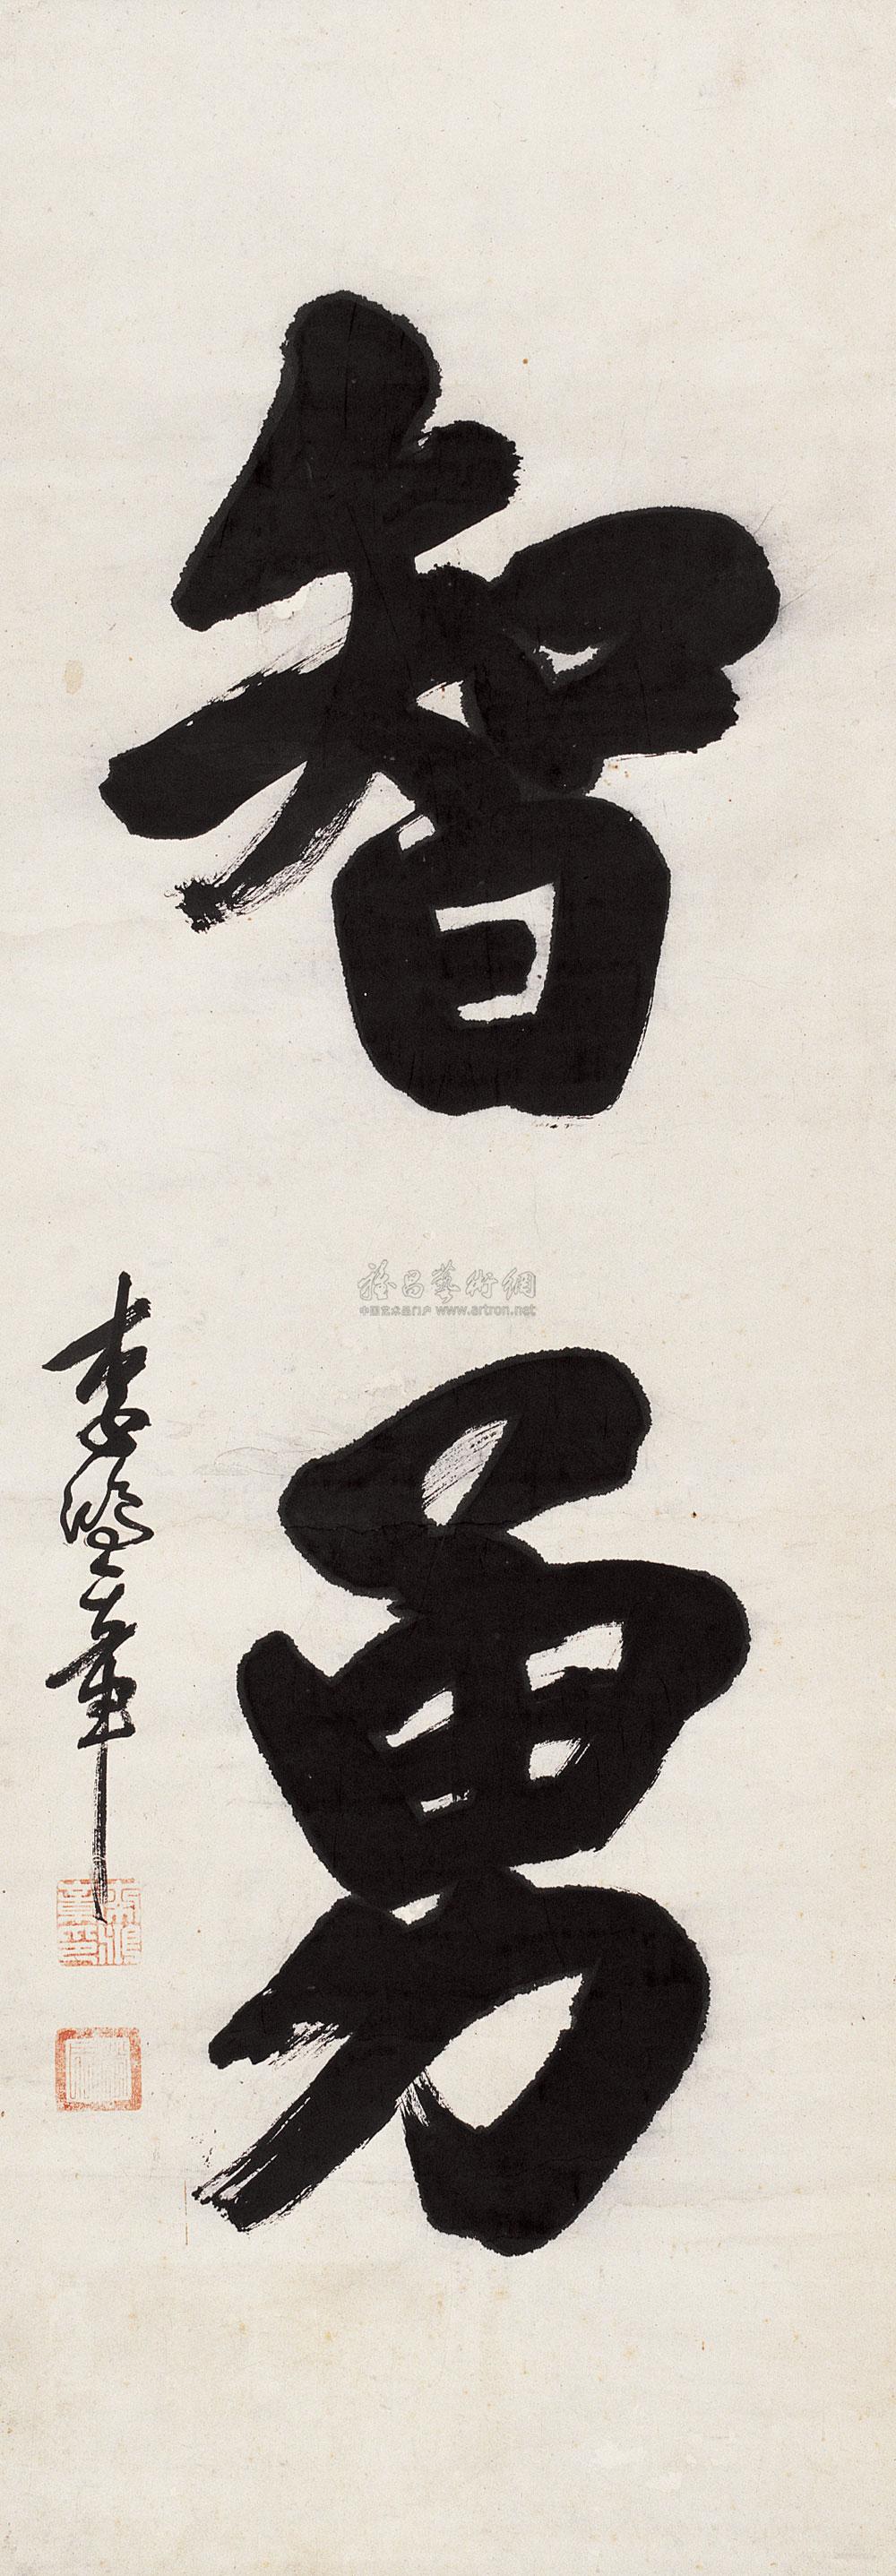 智勇
李鴻章
雅昌藝術網
中国艺术品门户 www.artron.net